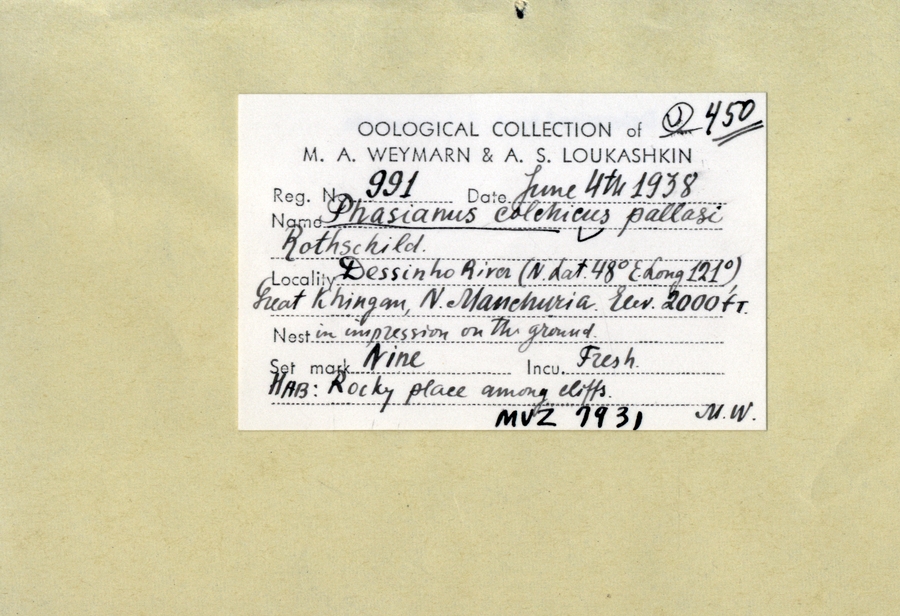 OOLOGICAL COLLECTION of U 450
M. A. WEYMARN & A. S. LOUKASHKIN
Reg. No. 991 Date June 4th 1938
Name Phasianus colchicus pallasi
Rothschild.
Locality Dessinho River (N. Lat. 48° E. Long 121°)
Great Khingan, N. Manchuria. Elev. 2000 FT.
Nest in impression on the ground.
Set mark Nine Incu. Fresh.
HAB: Rocky place among cliffs.
MVZ 7931 M. W.